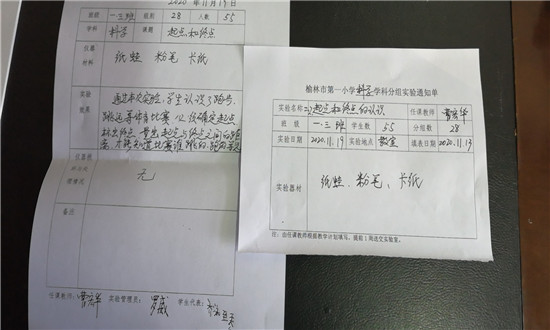 2020年11月19日
班级 一.三班 组别 28 人数 55
学科 科学 课题 起点和终点
仪器
材料
纸蛙 粉笔 卡纸
实验
效果
通过本次实验,学生认识了跑步,
跳远等体育比赛,必须确定起点
和终点,量出起点与终点之间的距
离,才能知道比赛谁跳的
仪器损
情况
无
备注
任课教师: 曹宏华 实验管理员: 罗威 学生代表:
榆林市第一小学科学学科分组实验通知单
实验名称 起点和终点的认识 任课教师 曹宏华
班 级 一.三班 学生数 55 分组数 28
实验日期 2020.11.19 实验地点 教室 填表日期 2020.11.13
实验器材
纸蛙、粉笔、卡纸
注:由任课教师根据教学计划填写,提前1周送交实验室。